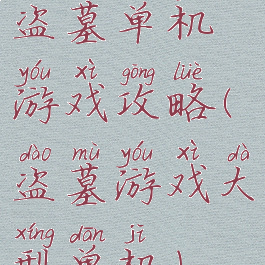 盗墓单机
yóu xì gōng lüè
游戏攻略(
dào mù yóu xì dà
盗墓游戏大
xíng dān jī
型单机)